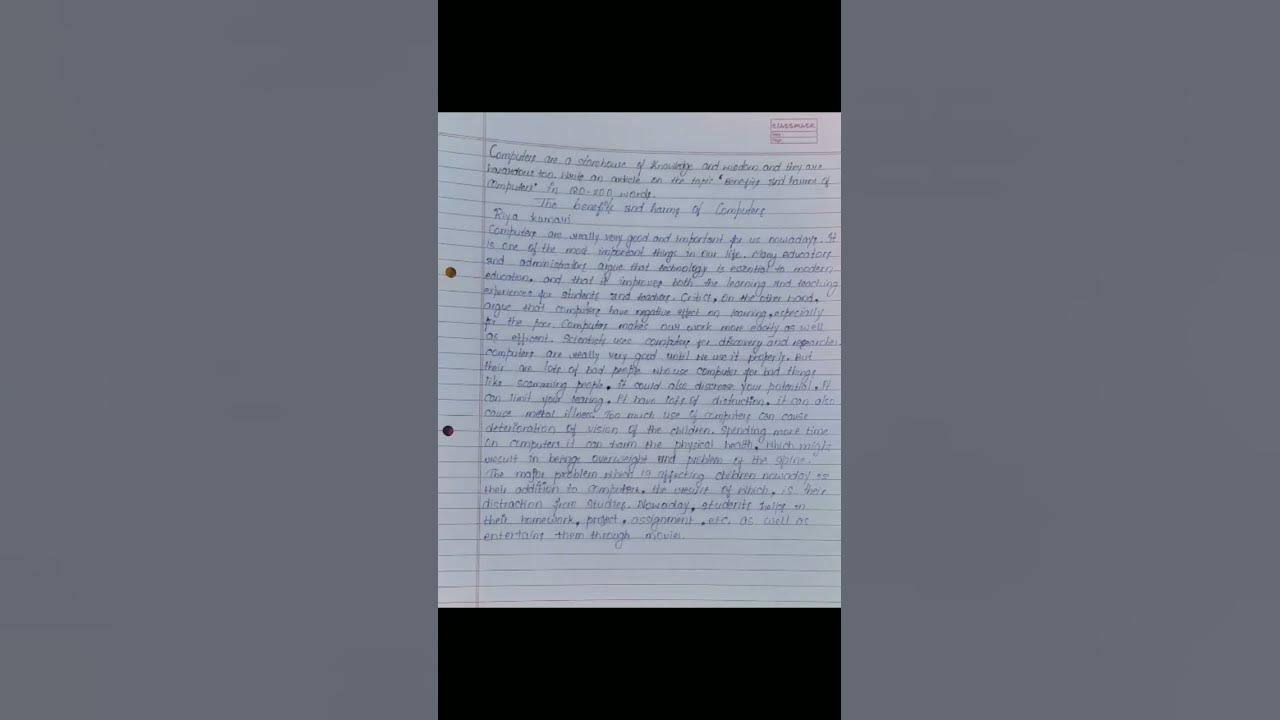 classmate
Date
Page
Computers are a storehouse of knowledge and wisdom and they are
hazardous too. Write an article on the topic "Benefits and harms of
Computers" in 120-200 words.
The benefits and harms of Computers
Riya kumari
Computers are really very good and important for us nowadays. It
is one of the most important things in our life. Many educators
and administrators argue that technology is essential to modern
education. and that it improves both the learning and teaching
experiences for students and teachers. Critics, on the other hand,
argue that computers have negative effect on learning, especially
for the poor. Computer makes our work more easily as well
as efficent. Scientists uses computer for discovery and researches
computers are really very good until we use it properly. But
their are lots of bad people who use computer for bad things
like scamming people. it could also discrease your potential. It
can limit your learing. It have lots of distruction. it can also
cause metal illness. Too much use of computers can cause
deterioration of vision of the children. Spending more time
on computers it can harm the physical health. Which might
result in beings overweight and problem of the spine.
The major problem which is affecting children nowaday is
their addition to computers. the result of which, is their
distraction from studies. Nowaday, students helps in
their homework, project, assignment, etc. as well as
entertains them through movies.